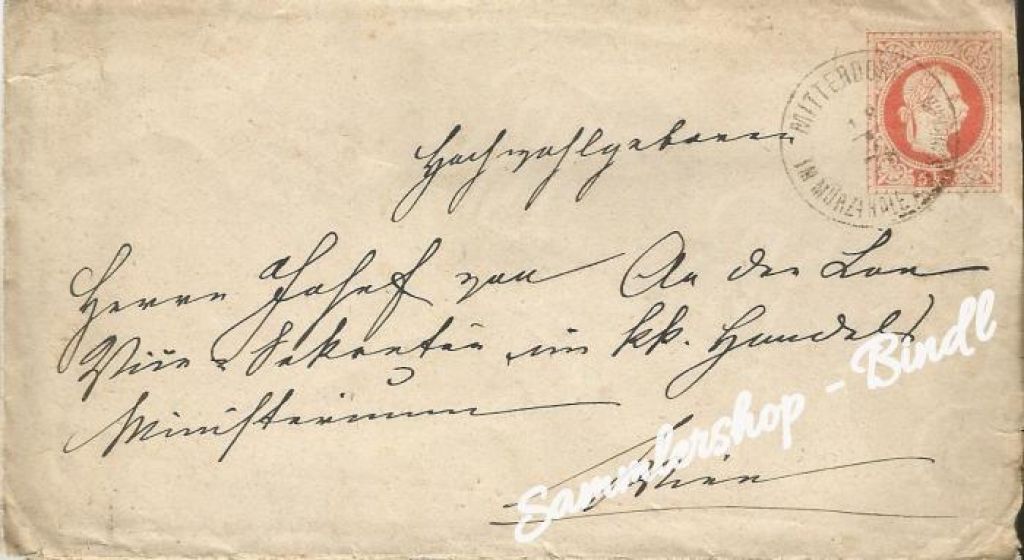 MITTERDORF
IM MÜRZTHALE
Hochwohlgeboren
Herrn Josef von An der Lan
Vice-Sekretär im kk. Handels
Ministerium
Wien
Sammlershop - Bindl